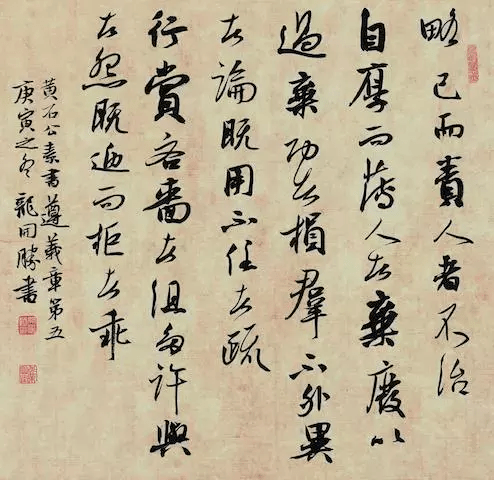 略己而責人者不治
自厚而薄人者棄廢以
過棄功者損羣下外異
者淪既用不任者疏
行賞吝嗇者沮多許與
者怨既迎而拒者乖
黃石公素書遵義章第五
庚寅之冬龍開勝書